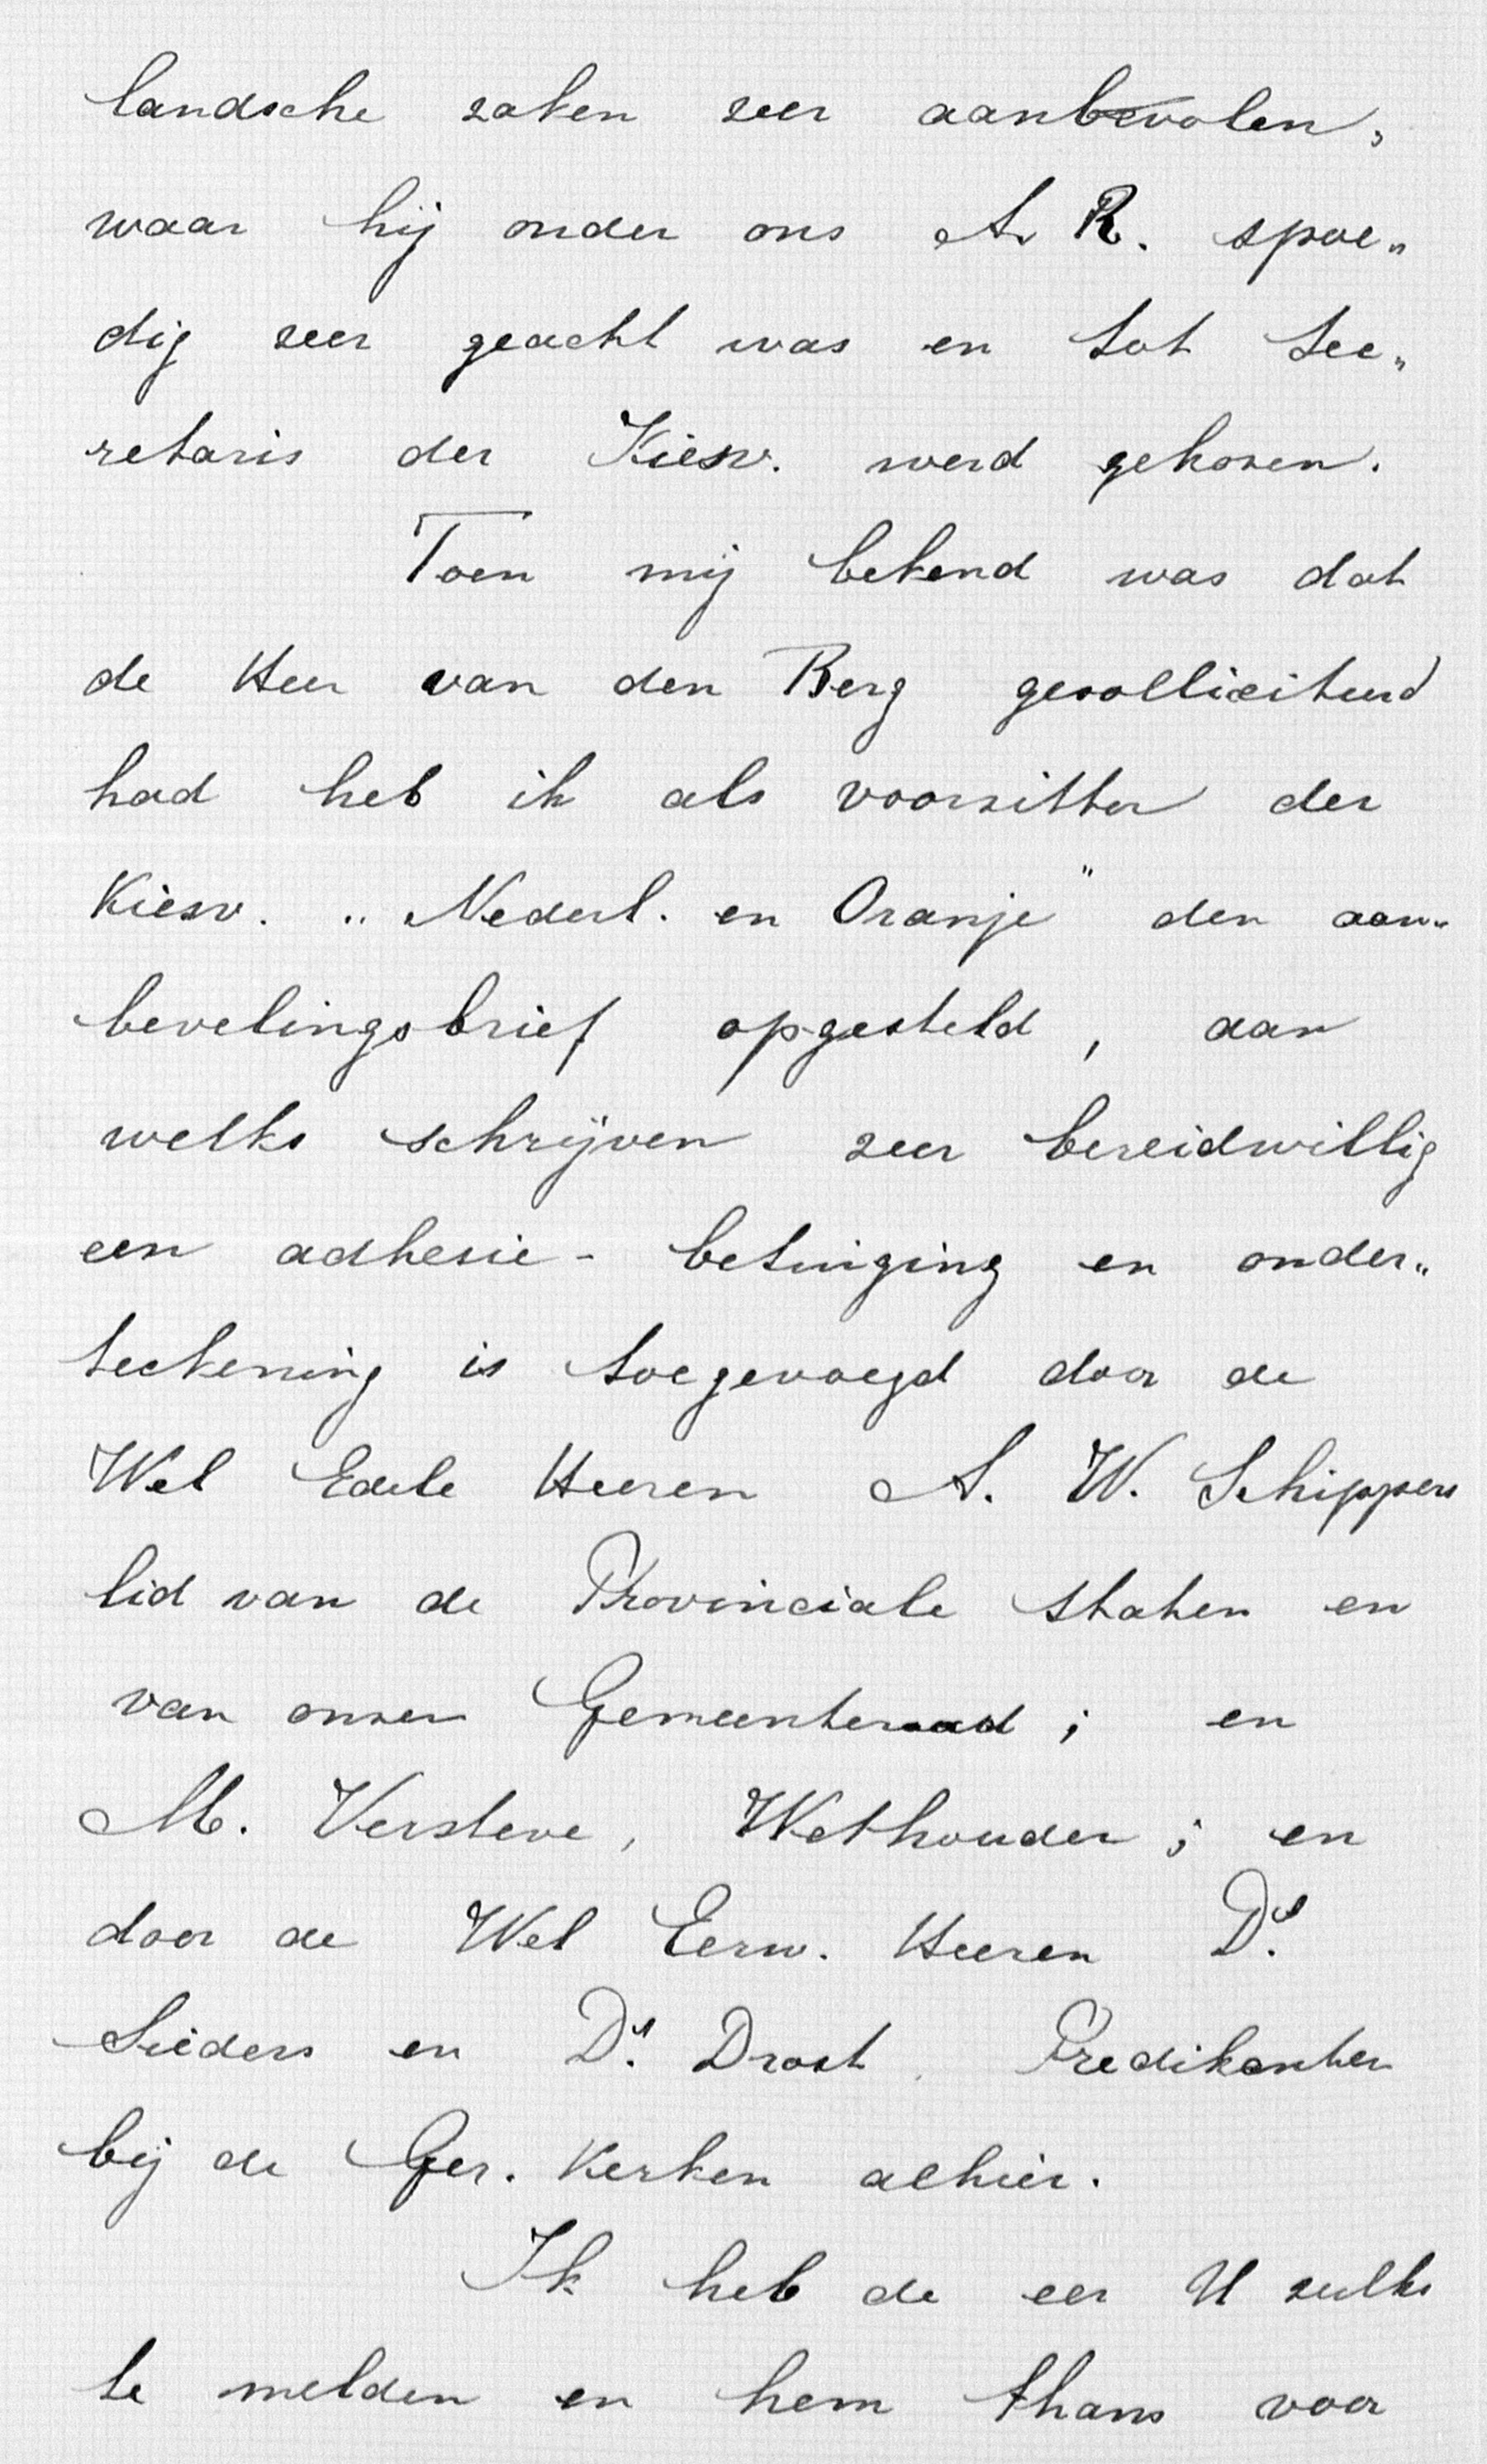 landsche zaken zeer aanbevolen,
waar hij onder ons A. R. spoe„
dig zeer geacht was en tot Sec„
retaris der Kiesv. werd gekozen.
Toen mij bekend was dat
de Heer van den Berg gesolliciteerd
had heb ik als voorzitter der
Kiesv. „Nederl. en Oranje" den aan„
bevelingsbrief opgesteld, aan
welks schrijven zeer bereidwillig
een adhesie-betuiging en onder„
teekening is toegevoegd door de
Wel Edele Heeren A. W. Schippers
lid van de Provinciale Staten en
van onzen Gemeenteraad; en
M. Versteve, Wethouder; en
door de Wel Eerw. Heeren Ds.
Sieders en Ds. Drost, Predikanten
bij de Ger. Kerken alhier.
Ik heb de eer U zulks
te melden en hem thans voor